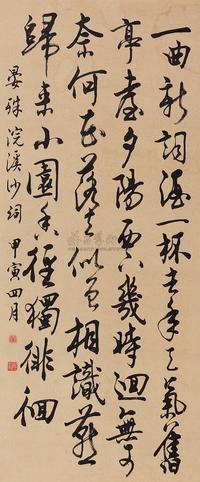 一曲新詞酒一杯去年天氣舊
亭臺夕陽西下幾時迴無可
奈何花落去似曾相識燕
歸來小園香徑獨徘徊
晏殊浣溪沙詞 甲寅四月